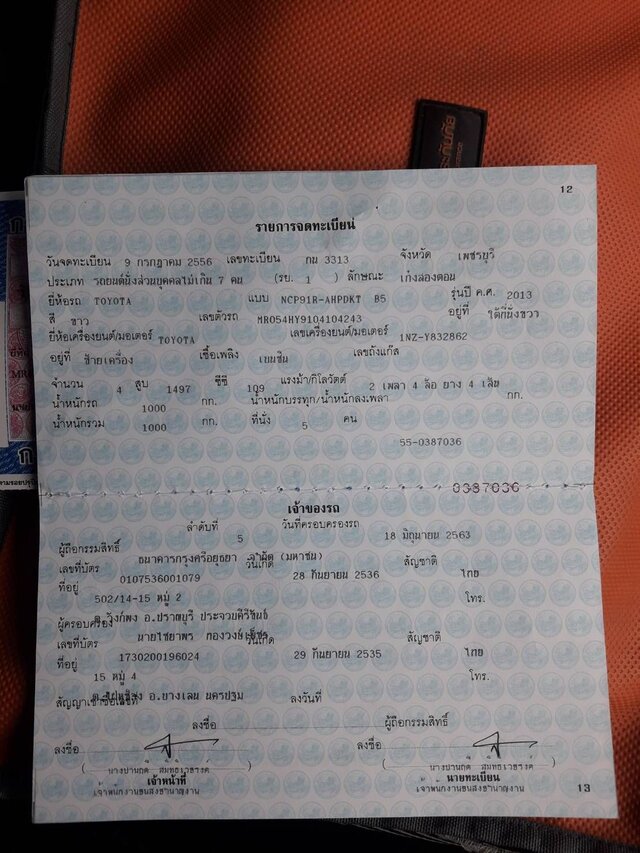 12
รายการจดทะเบียน
วันจดทะเบียน 9 กรกฎาคม 2556 เลขทะเบียน กน 3313 จังหวัด เพชรบุรี
ประเภท รถยนต์นั่งส่วนบุคคลไม่เกิน 7 คน (รย. 1 ) ลักษณะ เก๋งสองตอน
ยี่ห้อรถ TOYOTA แบบ NCP91R-AHPDKT B5 รุ่นปี ค.ศ. 2013
สี ขาว เลขตัวรถ MR054HY9104104243 อยู่ที่ ใต้ที่นั่งขวา
ยี่ห้อเครื่องยนต์/มอเตอร์ TOYOTA เลขเครื่องยนต์/มอเตอร์ 1NZ-Y832862
อยู่ที่ ซ้ายเครื่อง เชื้อเพลิง เบนซิน เลขถังแก๊ส
จำนวน 4 สูบ 1497 ซีซี 109 แรงม้า/กิโลวัตต์ 2 เพลา 4 ล้อ ยาง 4 เส้น
น้ำหนักรถ 1000 กก. น้ำหนักบรรทุก/น้ำหนักลงเพลา กก.
น้ำหนักรวม 1000 กก. ที่นั่ง 5 คน
55-0387036
0387036
เจ้าของรถ
ลำดับที่ 5 วันที่ครอบครองรถ 18 มิถุนายน 2563
ผู้ถือกรรมสิทธิ์ ธนาคารกรุงศรีอยุธยา จำกัด (มหาชน)
เลขที่บัตร 0107536001079 วันเกิด 28 กันยายน 2536 สัญชาติ ไทย
ที่อยู่ 502/14-15 หมู่ 2 โทร.
ต.วังก์พง อ.ปราณบุรี ประจวบคีรีขันธ์
ผู้ครอบครอง นายไชยาพร
เลขที่บัตร 1730200196024 วันเกิด 29 กันยายน 2535 สัญชาติ ไทย
ที่อยู่ 15 หมู่ 4 โทร.
อ.บางเลน นครปฐม
สัญญาเช่าซื้อเลขที่ ลงวันที่
ลงชื่อ ผู้ถือกรรมสิทธิ์
ลงชื่อ ลงชื่อ
เจ้าหน้าที่ นายทะเบียน
เจ้าพนักงานขนส่งชำนาญงาน เจ้าพนักงานขนส่งชำนาญงาน
13